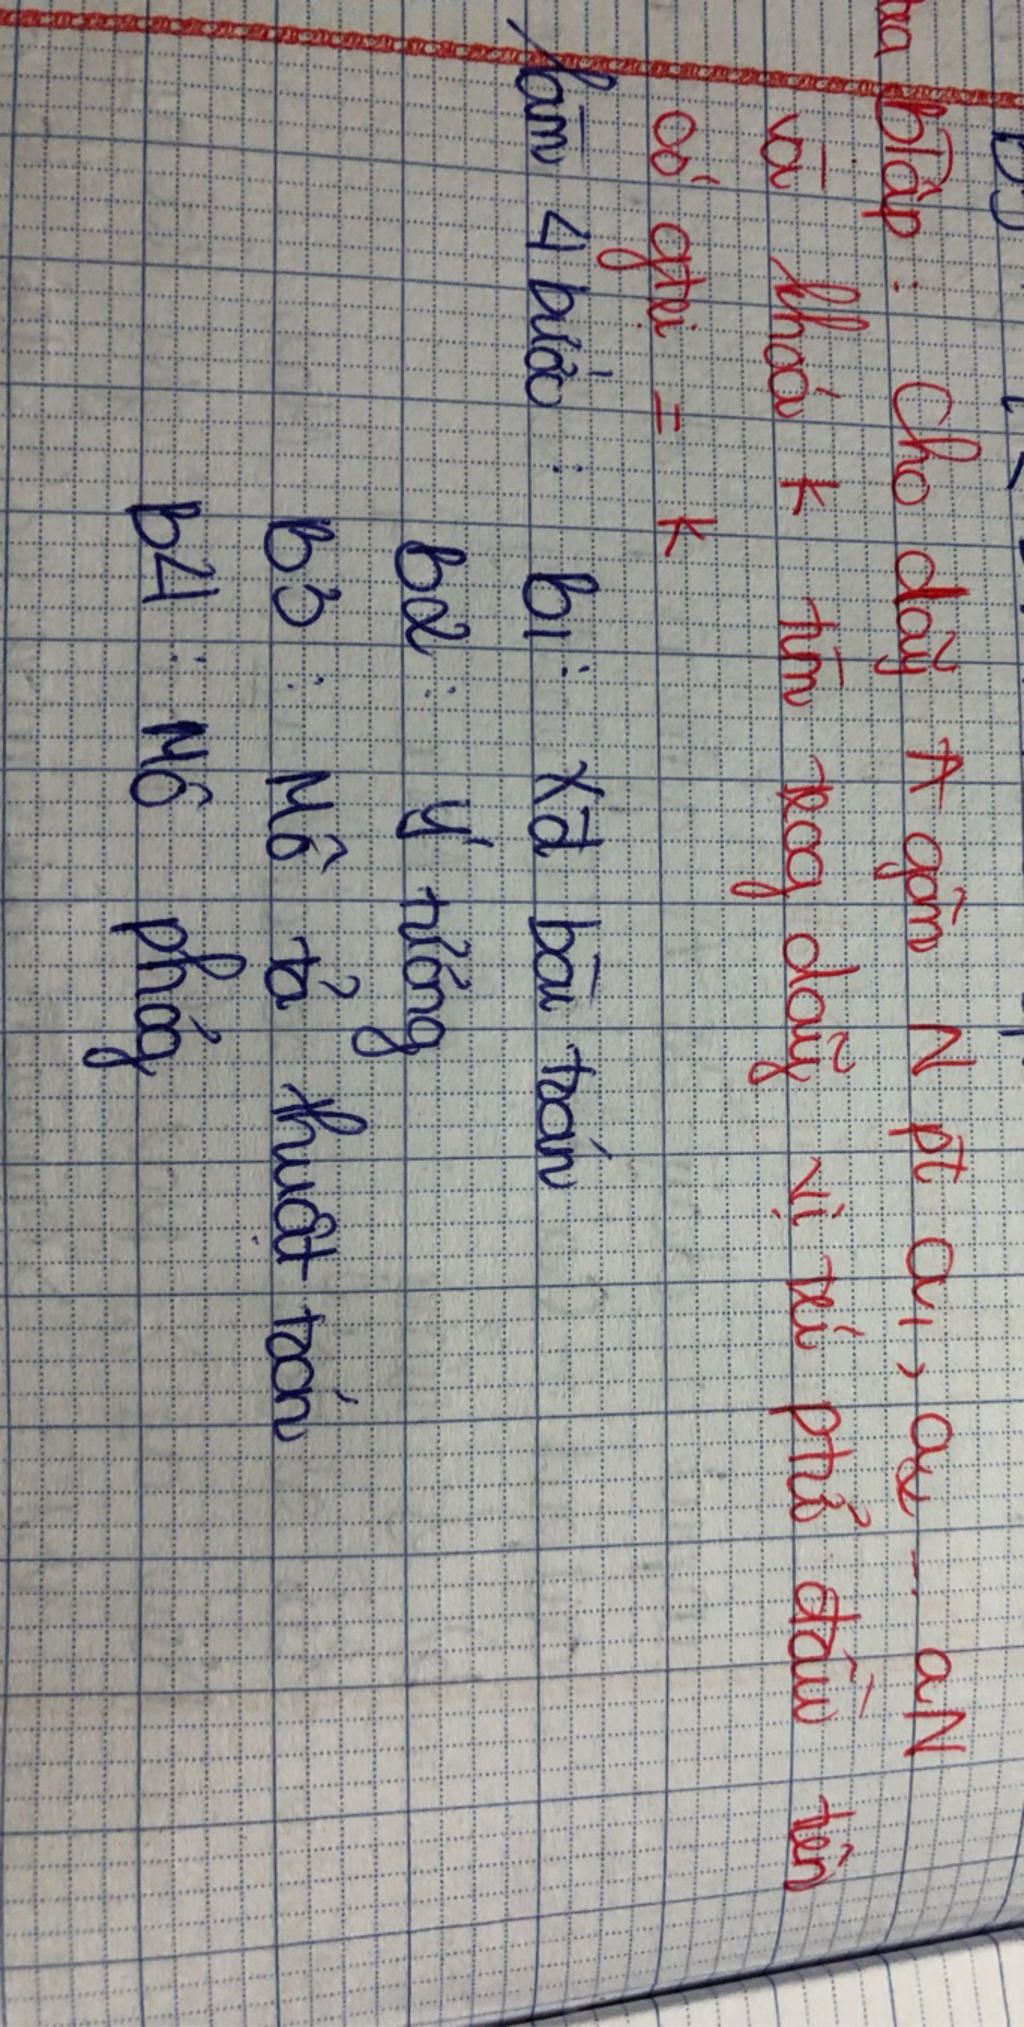 BTập : Cho dãy A gồm N pt a1, a2 ... aN
và khoá k tìm trog dãy vị trí ptử đầu tiên
có gtri = k
Làm 4 bước : b1 : Xđ bài toán
b2 : Ý tưởng
b3 : Mô tả thuật toán
b4 : Mô phỏg